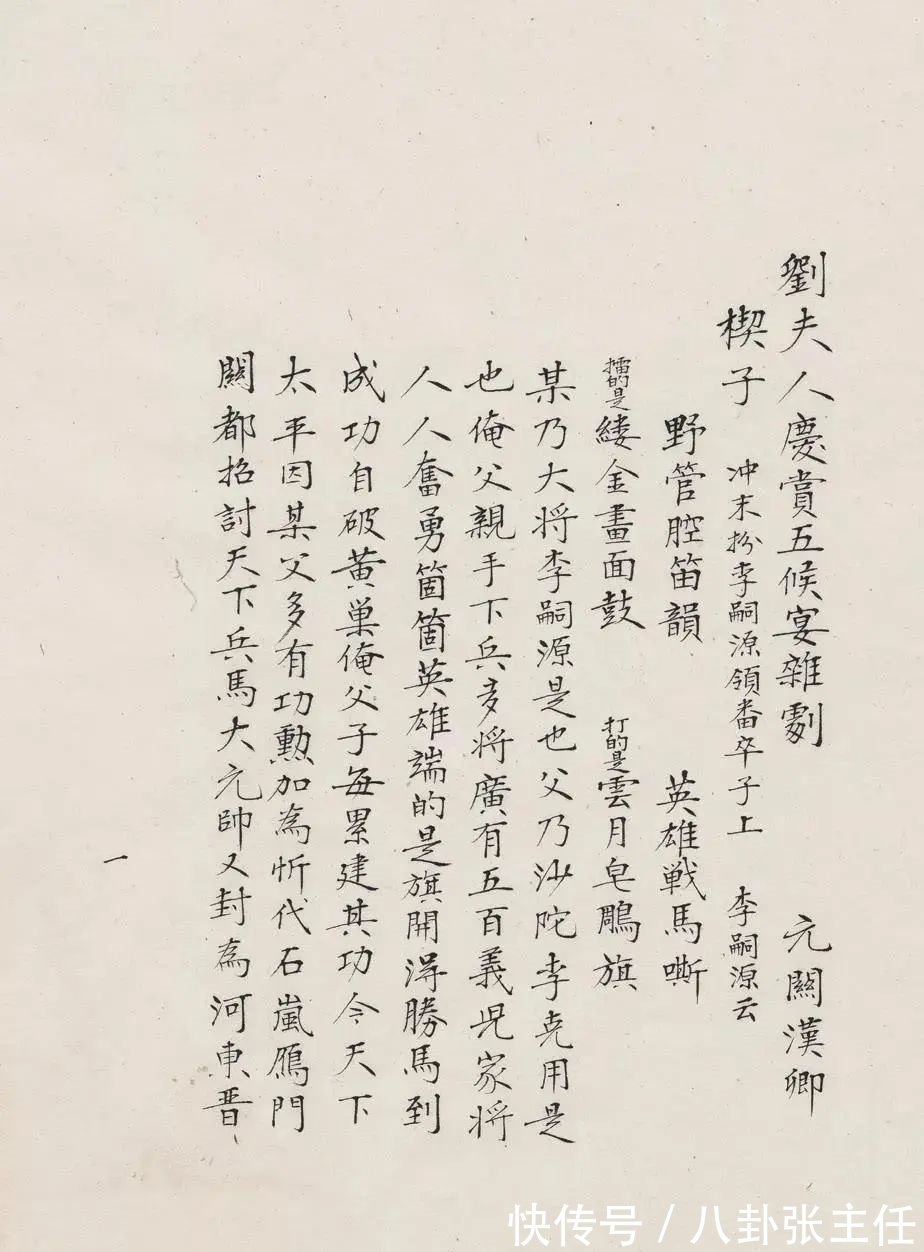 劉夫人慶賞五候宴雜劇 元關漢卿
楔子 冲末扮李嗣源領番卒子上 李嗣源云
野管腔笛韻 英雄戦馬嘶
擂的是縷金畫面鼓 打的是雲月皂鵰旗
某乃大将李嗣源是也父乃沙陀李克用是
也俺父親手下兵多将廣有五百義児家将
人人奮勇箇箇英雄端的是旗開得勝馬到
成功自破黄巢俺父子每累建其功今天下
太平因某父多有功勳加為忻代石嵐鴈門
關都招討天下兵馬大元帥又封為河東晋
一
快传号/八卦张主任